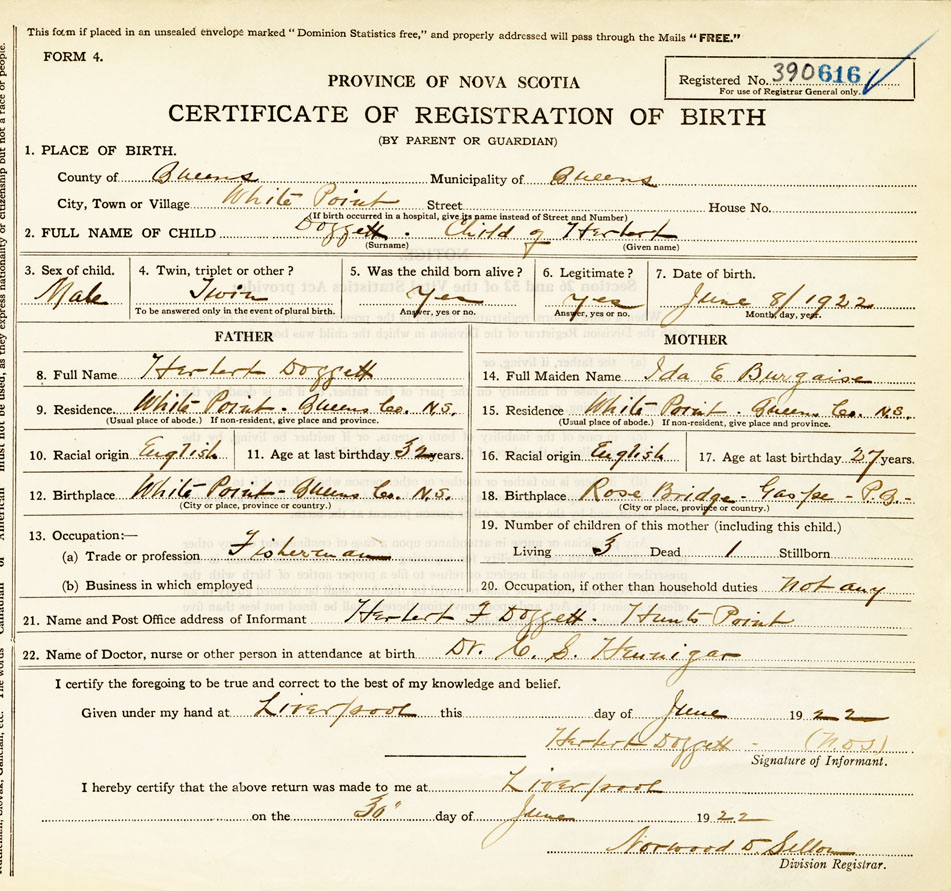 This form if placed in an unsealed envelope marked "Dominion Statistics free," and properly addressed will pass through the Mails "FREE."
FORM 4.
Registered No. 390616
For use of Registrar General only.
PROVINCE OF NOVA SCOTIA
CERTIFICATE OF REGISTRATION OF BIRTH
(BY PARENT OR GUARDIAN)
1. PLACE OF BIRTH.
County of Queens Municipality of Queens
City, Town or Village White Point Street House No.
(If birth occurred in a hospital, give its name instead of Street and Number)
2. FULL NAME OF CHILD Doggett - Child of Herbert
(Surname) (Given name)
3. Sex of child. 4. Twin, triplet or other? 5. Was the child born alive? 6. Legitimate? 7. Date of birth.
Male Twin Yes Yes June 8/1922
To be answered only in the event of plural birth. Answer, yes or no. Answer, yes or no. Month, day, year.
FATHER
8. Full Name Herbert Doggett
9. Residence White Point - Queens Co. N.S.
(Usual place of abode.) If non-resident, give place and province.
10. Racial origin English 11. Age at last birthday 32 years.
12. Birthplace White Point - Queens Co. N.S.
(City or place, province or country.)
13. Occupation:—
(a) Trade or profession Fisherman
(b) Business in which employed
MOTHER
14. Full Maiden Name Ida E Burgaise
15. Residence White Point - Queens Co. N.S.
(Usual place of abode.) If non-resident, give place and province.
16. Racial origin English 17. Age at last birthday 27 years.
18. Birthplace Rose Bridge - Gaspe - P.Q.
(City or place, province or country.)
19. Number of children of this mother (including this child.)
Living 3 Dead 1 Stillborn
20. Occupation, if other than household duties not any
21. Name and Post Office address of Informant Herbert F Doggett - Hunts Point
22. Name of Doctor, nurse or other person in attendance at birth Dr. S. Hennigar
I certify the foregoing to be true and correct to the best of my knowledge and belief.
Given under my hand at Liverpool this day of June 1922
Herbert Doggett -
Signature of Informant.
I hereby certify that the above return was made to me at Liverpool
on the 30" day of June 1922
Norwood D Sellon
Division Registrar.